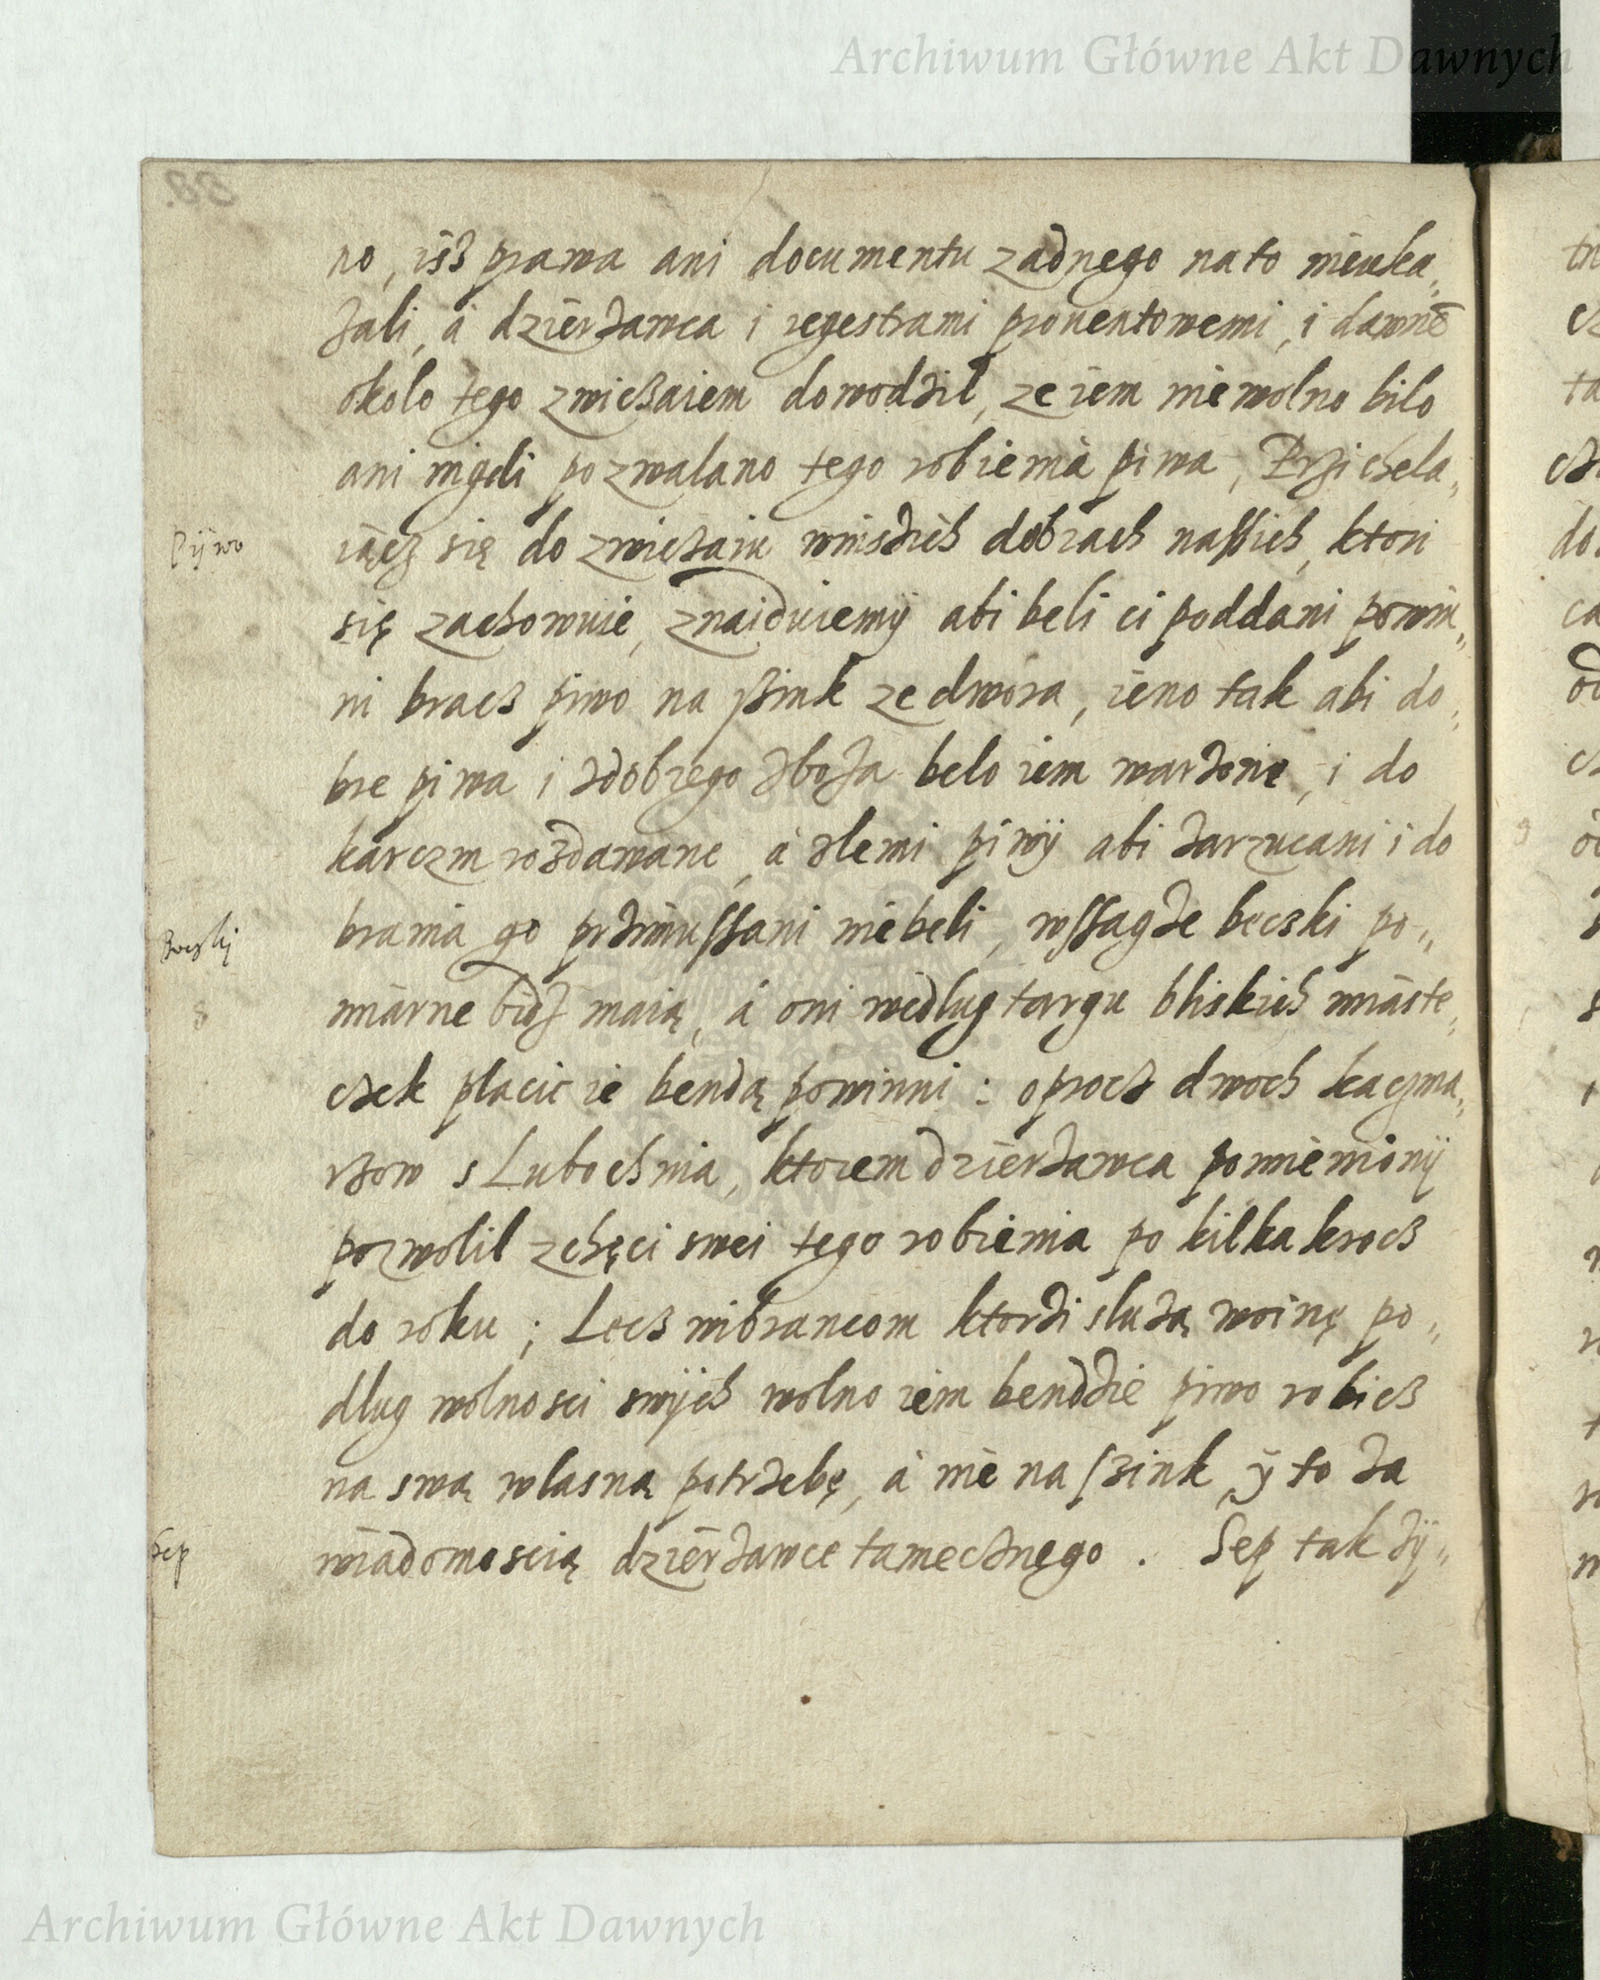 Archiwum Główne Akt Dawnych
no, isz prawa ani documentu zadnego na to nieuka„
zali, á dzierzawca i regestrami prouentowemi, i dawnē
okolo tego zwiczaiem dowodzil, ze iem nie wolno bilo
ani nigdi pozwalano tego robienia piwa, Przichela„
iącz się do zwiczaiu wnisżich dobrach naszich, ktori
się zachowuie, znaiduiemÿ abi beli ci poddani powin„
ni bracz piwo na szink ze dwora, ieno tak abi do„
bre piwa i zdobrego zboża belo iem warzonę, i do
karczm rozdawane, á zlemi piwÿ abi zarzucani i do
brania go przimuszani niebeli, wszagze beczki po„
miarne bidz maią, á oni według targu bliskich miaste„
czek placic ie bendą powinni: oprocz dwoch kaczma„
rzow s Lubochnia, ktorem dzierzawca pomienionÿ
pozwolil zchęci swei tego robienia po kilka krocz
do roku; Lecz wibrancom ktorzi służą woinę po„
dlug wolnosci swÿch wolno iem bendzie piwo robicz
na swą wlasną potrzebę, á nie na szink ÿ to za
wiadomoscią dzierzawce tamecznęgo. Sep tak zÿ„
Pÿwo
Beczkj
Sep
Archiwum Główne Akt Dawnych